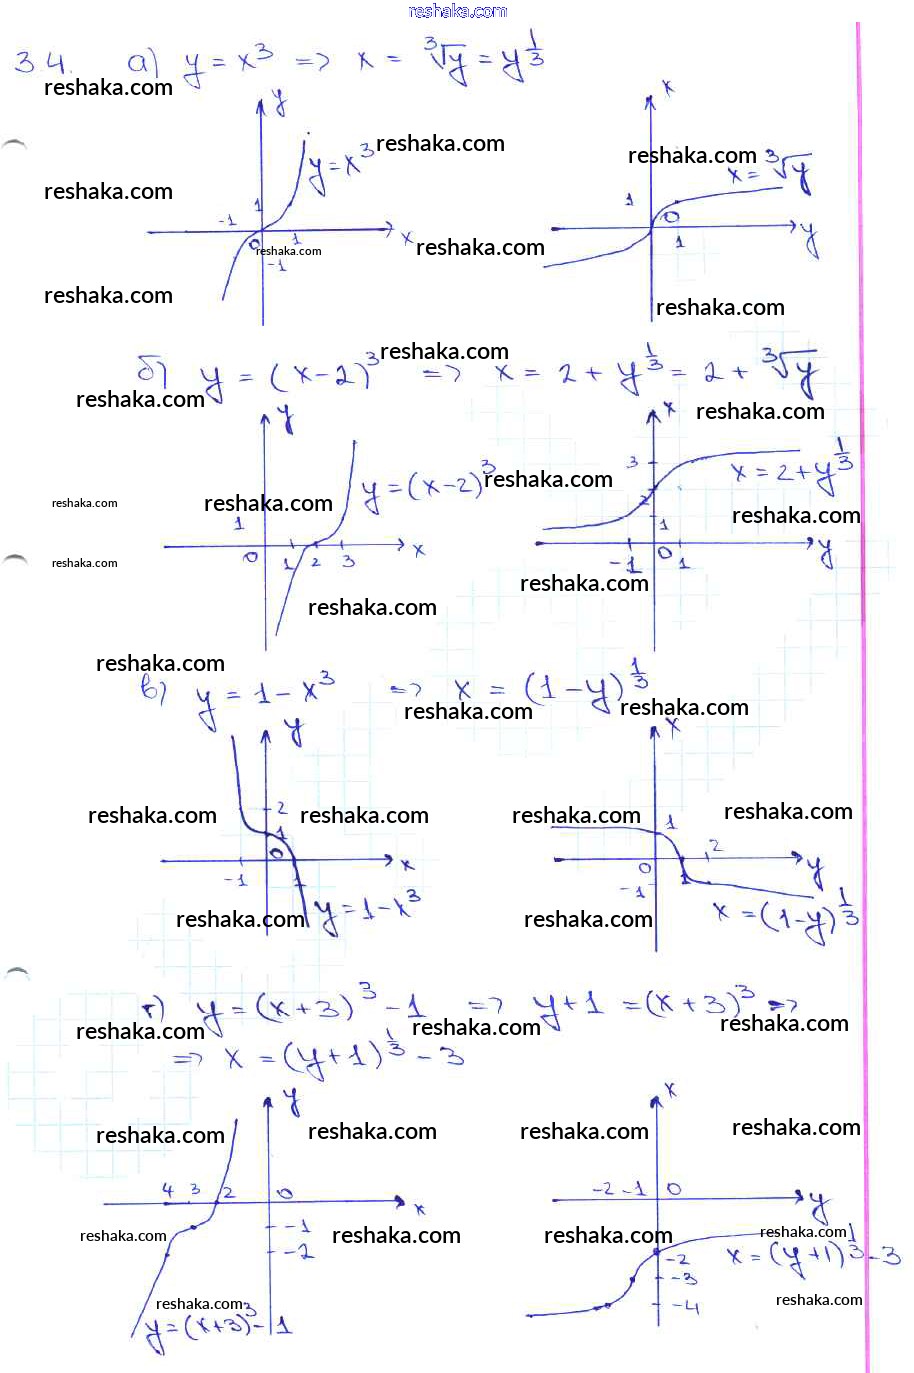 reshaka.com
3.4. а) y = x³ => x = ∛y = y^(1/3)
reshaka.com
y x
reshaka.com reshaka.com
y = x³ x = ∛y
reshaka.com
-1 1 1 0
0 1 x 1 y
reshaka.com reshaka.com
-1
reshaka.com reshaka.com
б) y = (x-2)³ => x = 2 + y^(1/3) = 2 + ∛y
reshaka.com
reshaka.com
y x reshaka.com
3
y = (x-2)³ x = 2 + y^(1/3)
reshaka.com
reshaka.com reshaka.com 2
1 1 reshaka.com
0 1 2 3 x -1 0 1 y
reshaka.com reshaka.com
reshaka.com
reshaka.com
в) y = 1 - x³ => x = (1-y)^(1/3)
reshaka.com reshaka.com
y x
2
reshaka.com reshaka.com reshaka.com reshaka.com
1 1
0 x 0 1 2 y
-1 1 -1
y = 1-x³ x = (1-y)^(1/3)
reshaka.com reshaka.com
г) y = (x+3)³ - 1 => y+1 = (x+3)³ =>
reshaka.com reshaka.com reshaka.com
=> x = (y+1)^(1/3) - 3
y x
reshaka.com reshaka.com reshaka.com reshaka.com
4 3 2 0 x -2 -1 0 y
-1
reshaka.com reshaka.com reshaka.com reshaka.com
-2 -2 x = (y+1)^(1/3) - 3
-3
reshaka.com -4 reshaka.com
y = (x+3)³ - 1